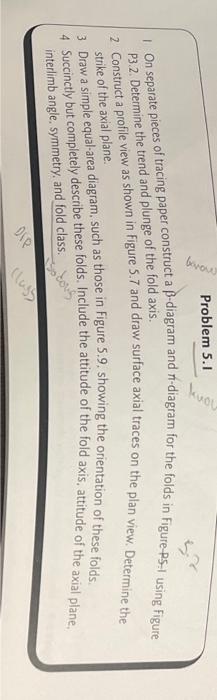 Problem 5.1
1 On separate pieces of tracing paper construct a β-diagram and π-diagram for the folds in Figure P5.1 using Figure
P3.2. Determine the trend and plunge of the fold axis.
2 Construct a profile view as shown in Figure 5.7 and draw surface axial traces on the plan view. Determine the
strike of the axial plane.
3 Draw a simple equal-area diagram, such as those in Figure 5.9, showing the orientation of these folds.
4 Succinctly but completely describe these folds. Include the attitude of the fold axis, attitude of the axial plane,
interlimb angle, symmetry, and fold class.
DIP
Class